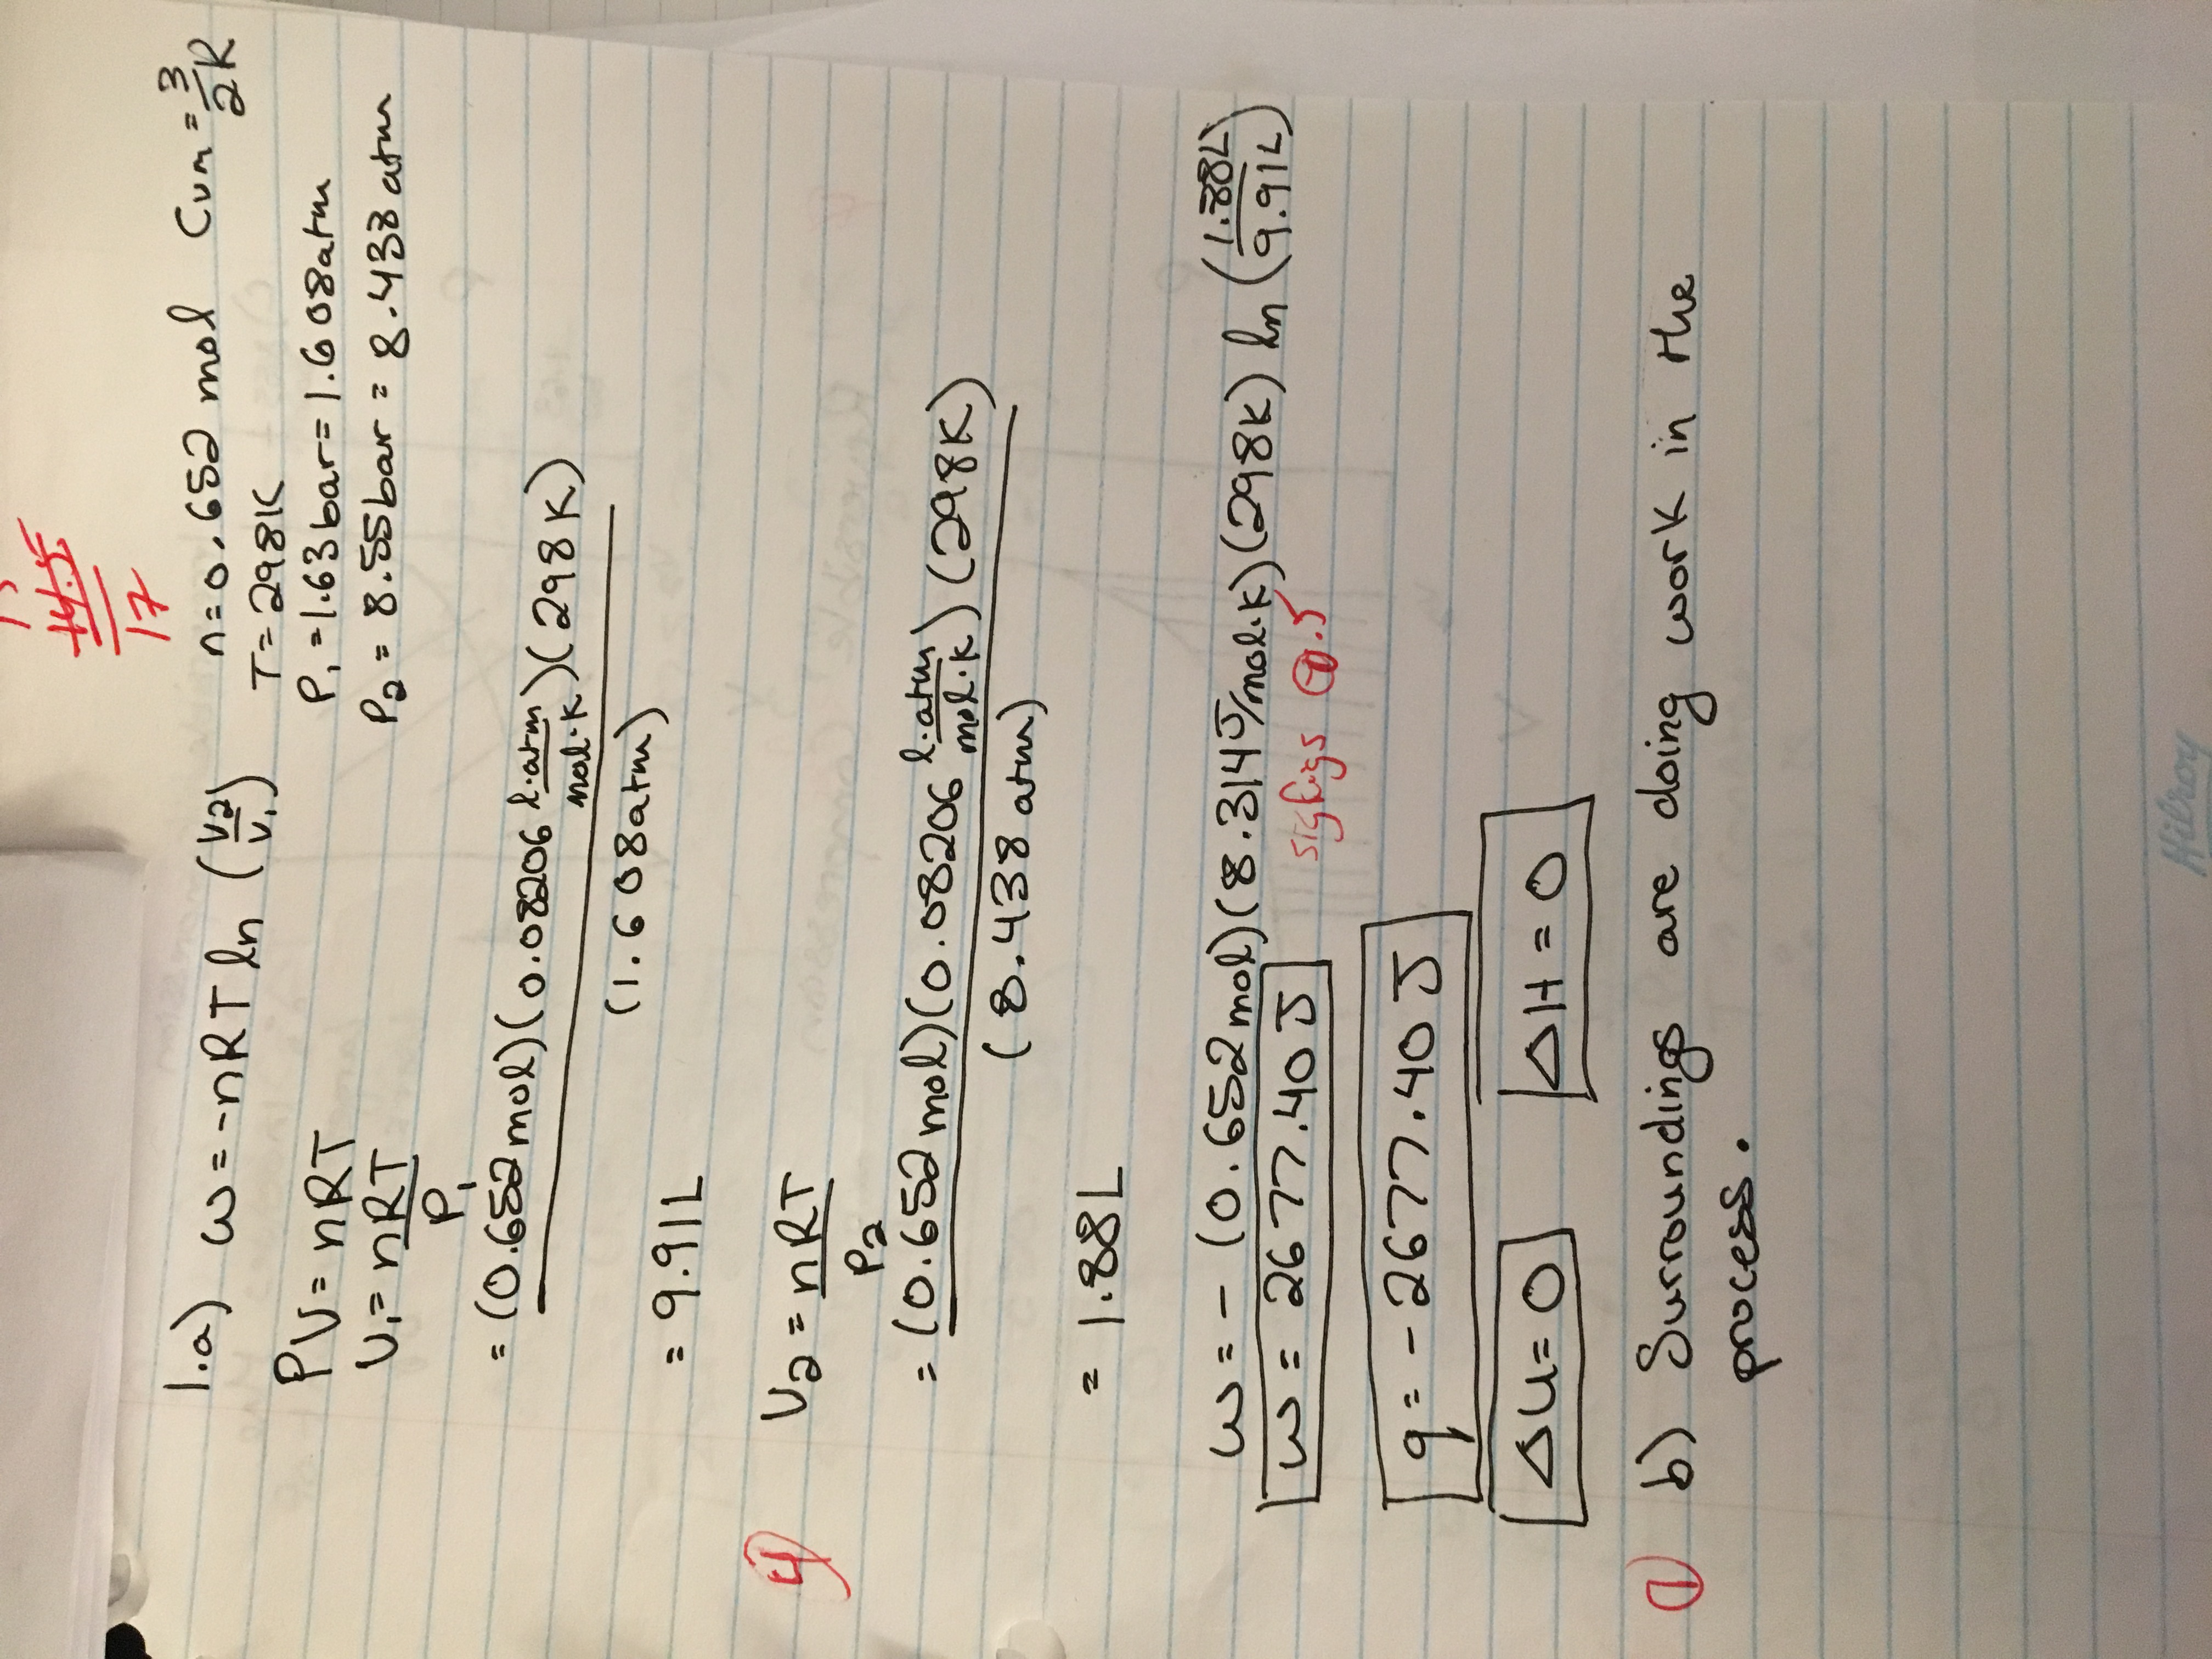 14.5
17
1.a) w = -nRT ln (V2/V1) n=0.652 mol Cvm = 3/2 R
T=298K
PV = nRT P1 = 1.63 bar = 1.608atm
V1 = nRT/P1 P2 = 8.55bar = 8.438 atm
= (0.652mol)(0.08206 l·atm/mol·K)(298K)
(1.608atm)
= 9.91L
4
V2 = nRT/P2
= (0.652mol)(0.08206 l·atm/mol·K)(298K)
(8.438 atm)
= 1.88L
w = -(0.652mol)(8.314J/mol·K)(298K) ln (1.88L/9.91L)
w = 2677.40J sigfigs -0.5
q = -2677.40J
ΔU=0 ΔH=0
1 b) Surroundings are doing work in the
process.
Hilroy